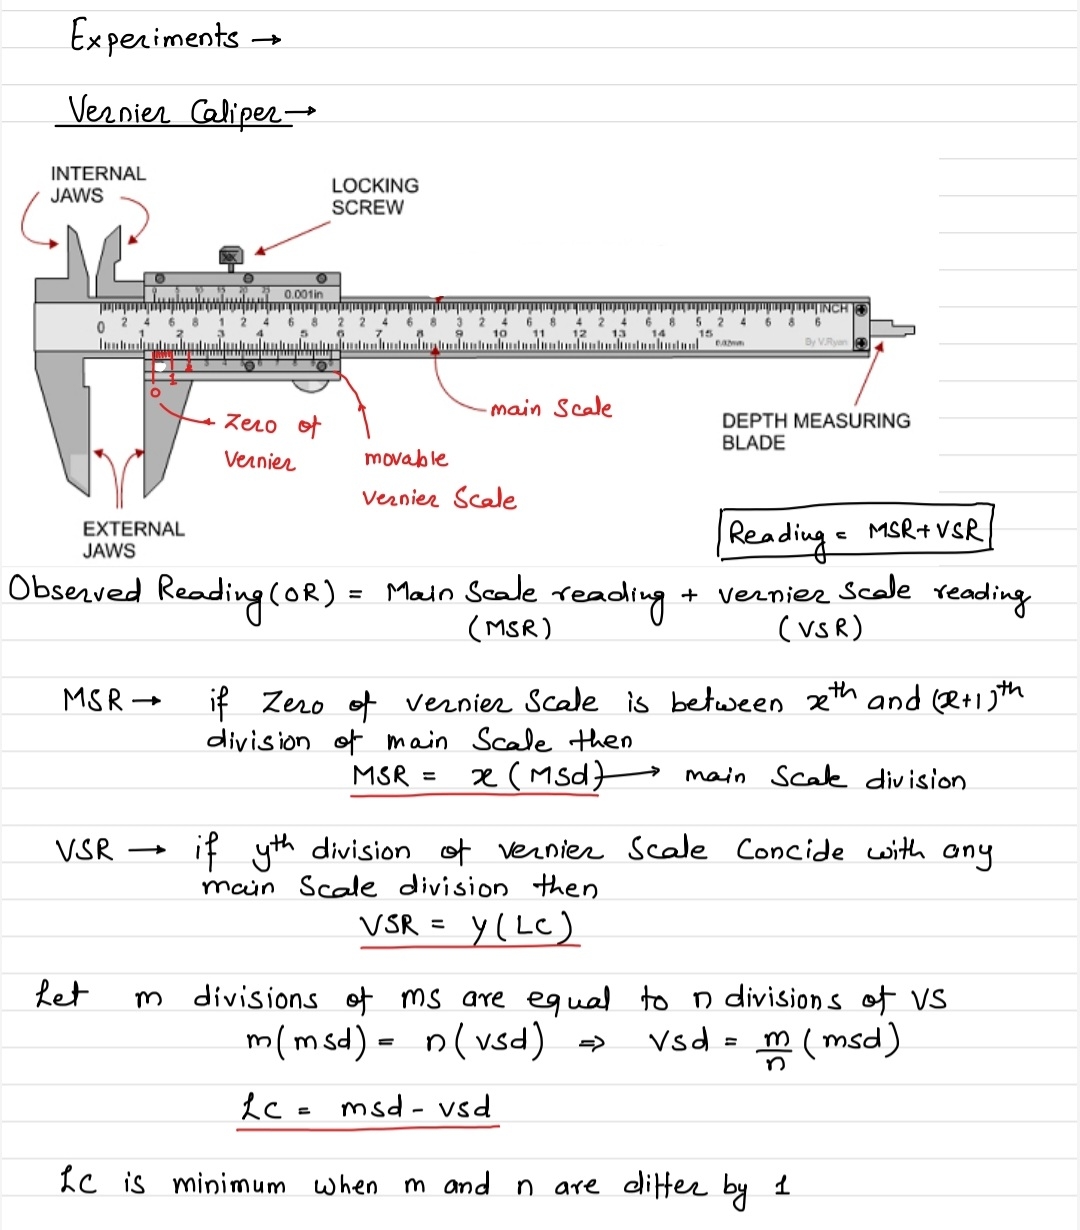 Experiments →
Vernier Caliper →
INTERNAL
JAWS
LOCKING
SCREW
0 5 10 15 20 25 0.001in
0 2 4 6 8 1 2 4 6 8 2 2 4 6 8 3 2 4 6 8 4 2 4 6 8 5 2 4 6 8 6 INCH
1 2 3 4 5 6 7 8 9 10 11 12 13 14 15 0.02mm By V.Ryan
0 1
Zero of
Vernier
main Scale
movable
Vernier Scale
DEPTH MEASURING
BLADE
EXTERNAL
JAWS
Reading = MSR+VSR
Observed Reading (OR) = Main Scale reading + vernier Scale reading
(MSR) (VSR)
MSR → if Zero of vernier Scale is between xth and (x+1)th
division of main Scale then
MSR = x (Msd) → main Scale division
VSR → if yth division of vernier Scale Concide with any
main Scale division then
VSR = y(LC)
Let m divisions of ms are equal to n divisions of VS
m(msd) = n(vsd) ⇒ vsd = m/n (msd)
LC = msd - vsd
LC is minimum when m and n are differ by 1